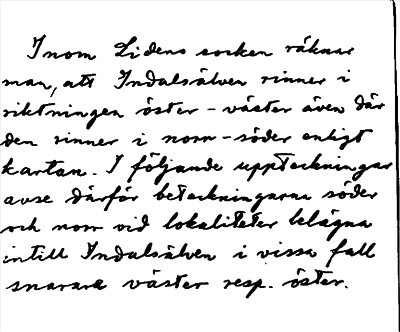 Inom Lidens socken räknar
man, att Indalsälven rinner i
riktningen öster - väster även där
den rinner i norr - söder enligt
kartan. I följande uppteckningar
avse därför beteckningarna söder
och norr vid lokaliteter belägna
intill Indalsälven i vissa fall
snarare väster resp. öster.